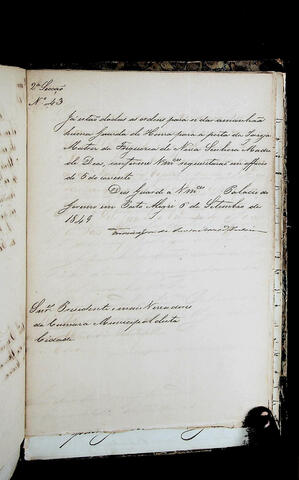 2ª Secção
Nº 43
Já estão dadas as ordens para ir da amanhã
huma Guarda de Honra para a porta da Igreja
Matriz da Freguesia de Nossa Senhora Madre
de Deos, conforme Vmces requisitarão em officio
de 5 do corrente.
Deos Guarde a Vmces Palacio do
Governo em Porto Alegre 6 de Setembro de
1849
Snres Presidente e mais Vereadores
da Camara Municipal desta
Cidade